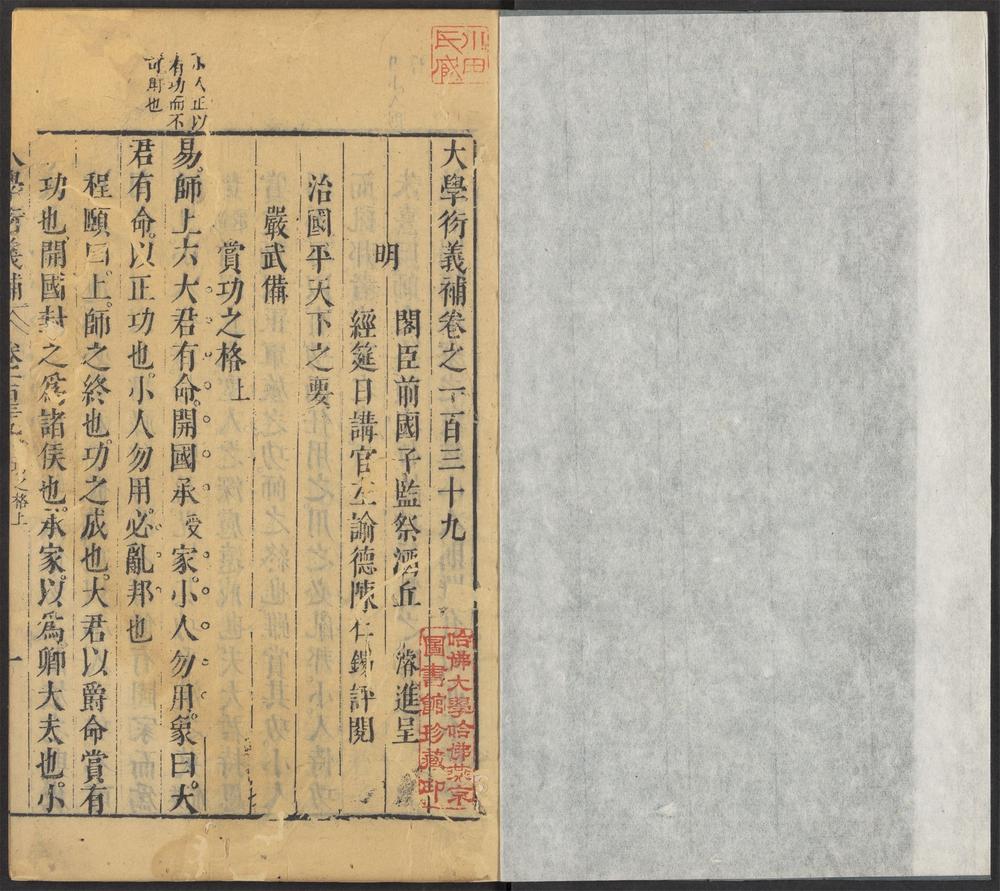 大學衍義補卷之一百三十九
明 閣臣前國子監祭酒丘 濬進呈
經筵日講官左諭德陳仁錫評閱
治國平天下之要
嚴武備
賞功之格上
易師上六大君有命開國承家小人勿用象曰大
君有命以正功也小人勿用必亂邦也
程頤曰上師之終也功之成也大君以爵命賞有
功也開國封之爲諸侯也承家以爲卿大夫也小
小人正以
有功而不
可用也
大學衍義補
之格上
一
小田
氏藏
哈佛大學哈佛燕京
圖書館珍藏印